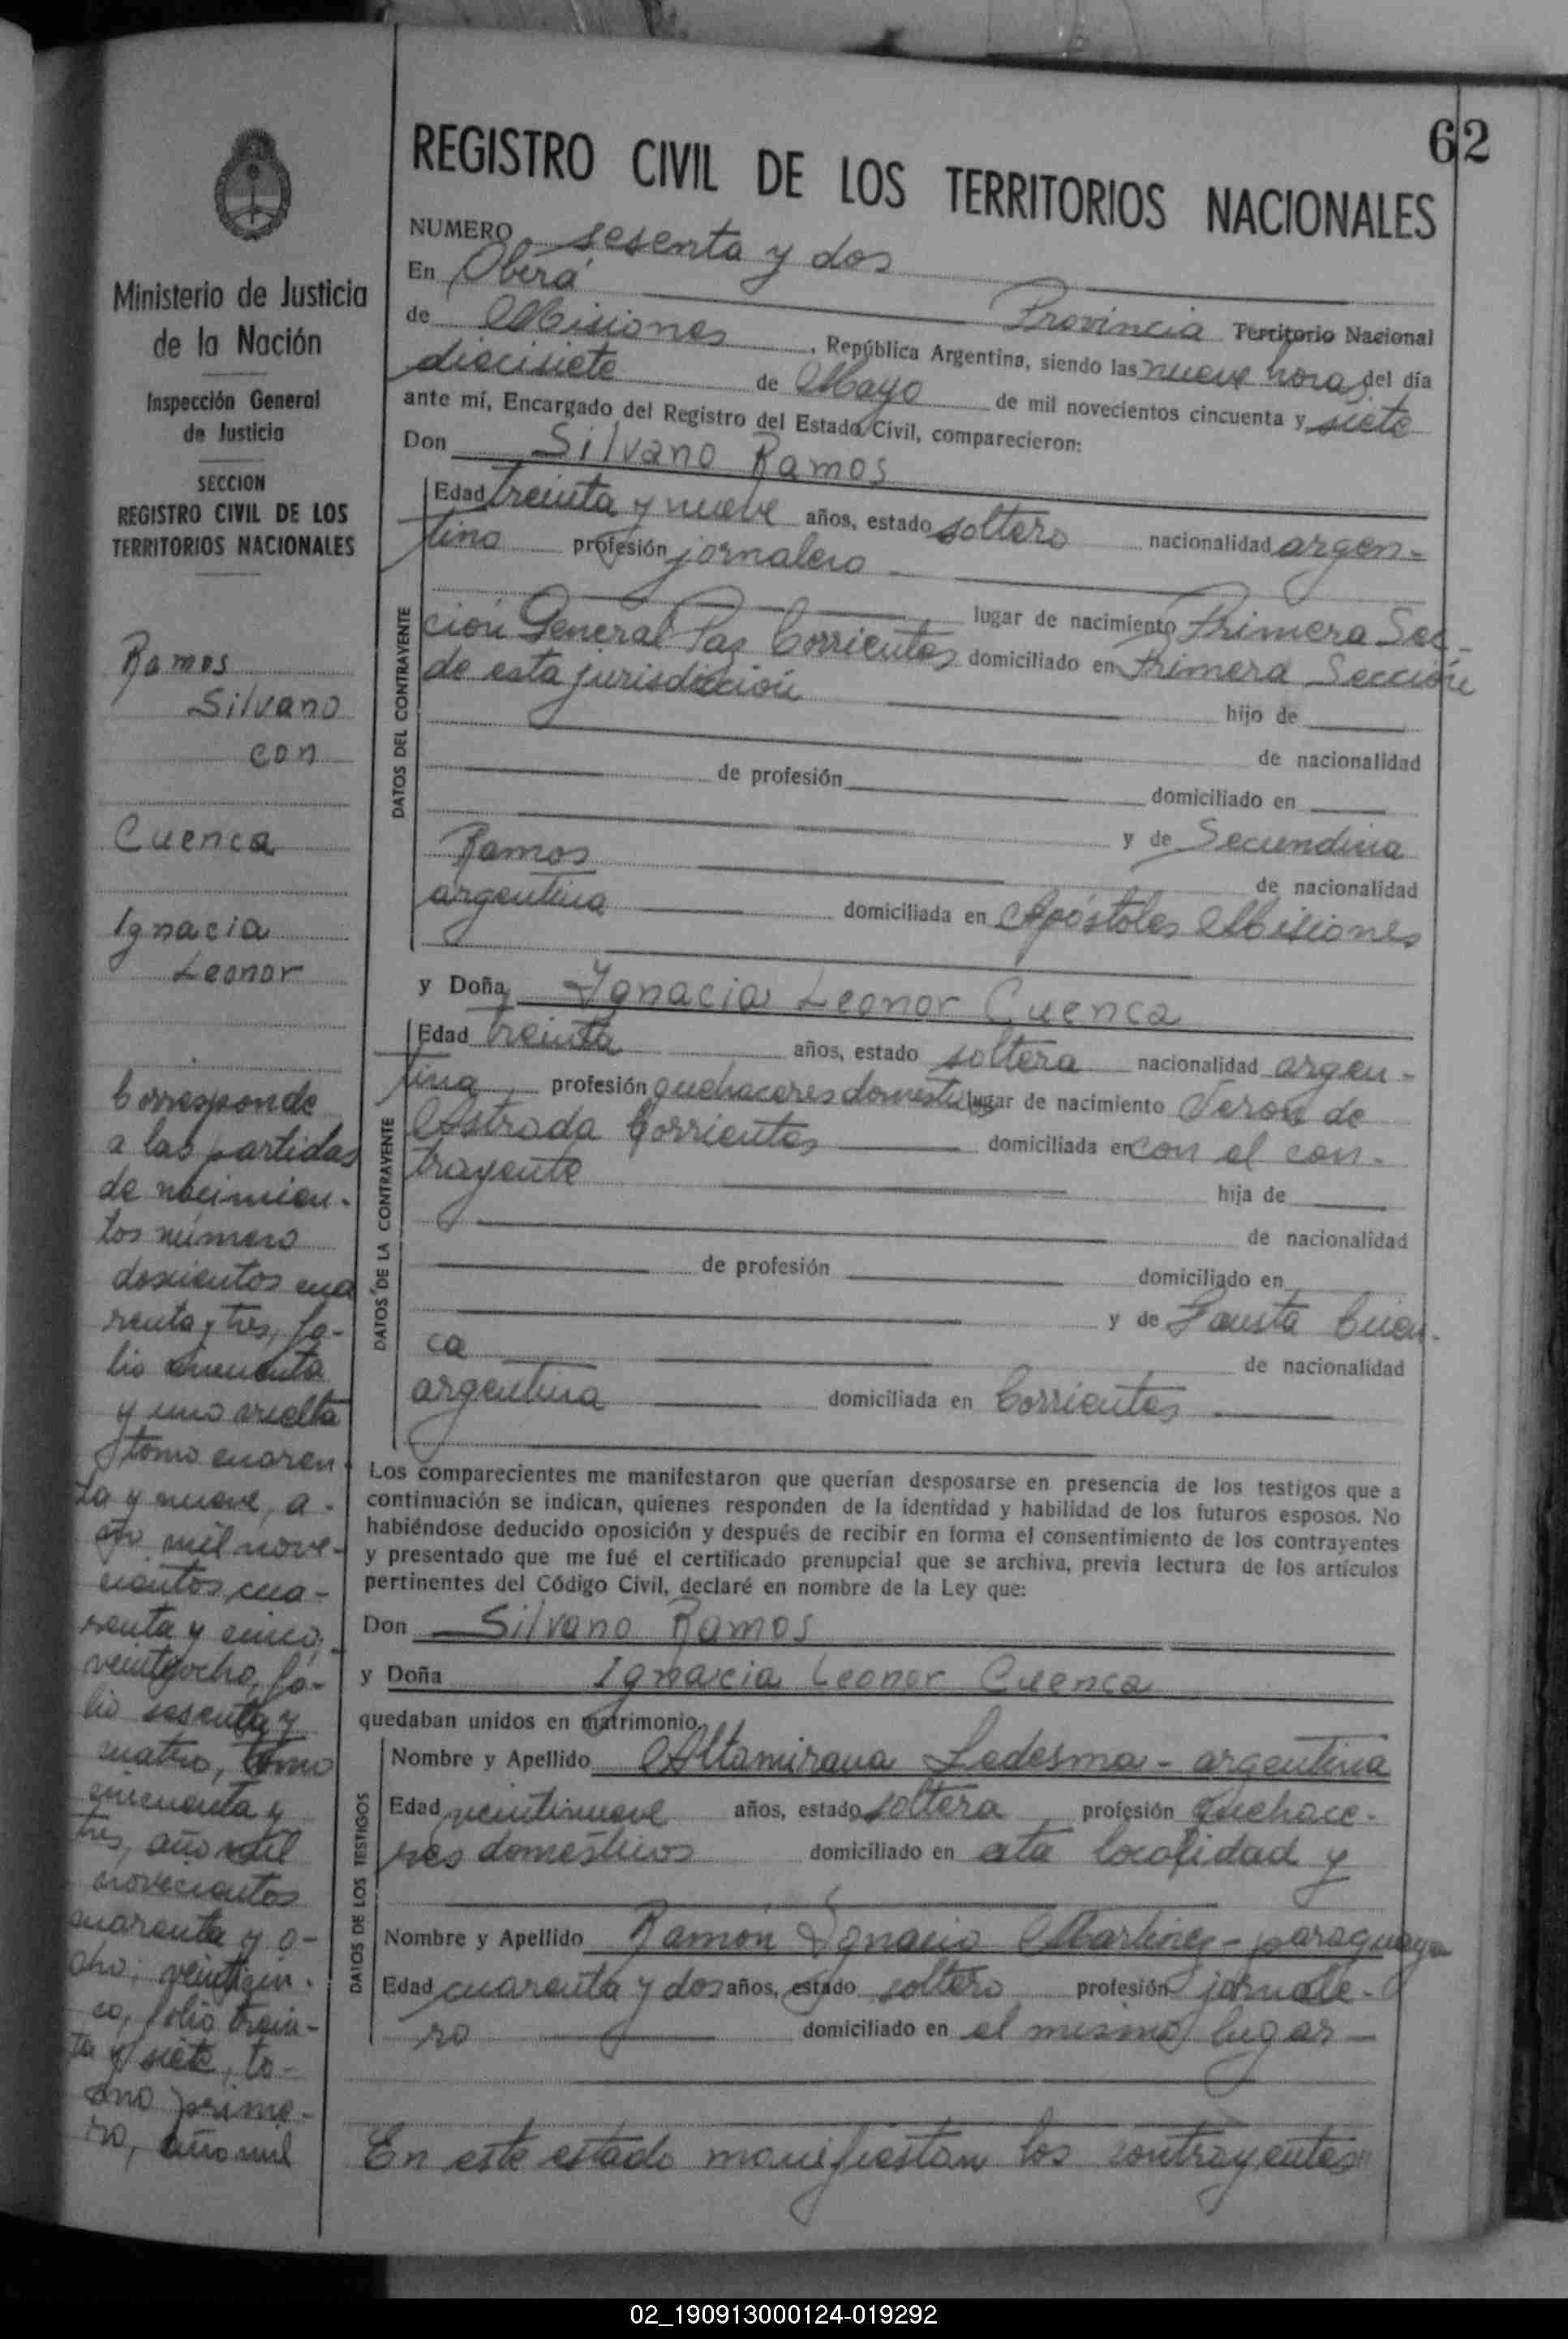 62
REGISTRO CIVIL DE LOS TERRITORIOS NACIONALES
Ministerio de Justicia
de la Nación
Inspección General
de Justicia
SECCION
REGISTRO CIVIL DE LOS
TERRITORIOS NACIONALES
Ramos
Silvano
con
Cuenca
Ignacia
Leonor
Corresponde
a las partidas
de nacimien-
tos número
doscientos cua
renta y tres, fo-
lio cincuenta
y uno vuelta
tomo cuaren
ta y nueve, a-
ño mil nove-
cientos cua-
renta y cinco;
veintiocho, fo-
lio sesenta y
cuatro, tomo
cincuenta y
tres, año mil
novecientos
cuarenta y o-
cho; veinticin-
co, folio trein-
ta y siete, to-
mo prime-
ro, año mil
NUMERO sesenta y dos
En Oberá Provincia Territorio Nacional
de Misiones, República Argentina, siendo las nueve horas del día
diecisiete de Mayo de mil novecientos cincuenta y siete
ante mí, Encargado del Registro del Estado Civil, comparecieron:
Don Silvano Ramos
DATOS DEL CONTRAYENTE
Edad treinta y nueve años, estado soltero nacionalidad argen-
tino profesión jornalero
lugar de nacimiento Primera Sec-
ción General Paz Corrientes domiciliado en Primera Sección
de esta jurisdicción hijo de
de nacionalidad
de profesión domiciliado en
y de Secundina
Ramos de nacionalidad
argentina domiciliada en Apóstoles Misiones
y Doña Ignacia Leonor Cuenca
DATOS DE LA CONTRAYENTE
Edad treinta años, estado soltera nacionalidad argen-
tina profesión quehaceres domesticos lugar de nacimiento de
Astrada Corrientes domiciliada en con el con-
trayente hija de
de nacionalidad
de profesión domiciliado en
y de Fausta Cuen-
ca de nacionalidad
argentina domiciliada en Corrientes
Los comparecientes me manifestaron que querían desposarse en presencia de los testigos que a
continuación se indican, quienes responden de la identidad y habilidad de los futuros esposos. No
habiéndose deducido oposición y después de recibir en forma el consentimiento de los contrayentes
y presentado que me fué el certificado prenupcial que se archiva, previa lectura de los artículos
pertinentes del Código Civil, declaré en nombre de la Ley que:
Don Silvano Ramos
y Doña Ignacia Leonor Cuenca
quedaban unidos en matrimonio.
DATOS DE LOS TESTIGOS
Nombre y Apellido Altamirana Ledesma - argentina
Edad veintinueve años, estado soltera profesión quehace-
res domésticos domiciliado en esta localidad y
Nombre y Apellido Ramón Ignacio Martinez - paraguayo
Edad cuarenta y dos años, estado soltero profesión jornale-
ro domiciliado en el mismo lugar
En este estado manifiestan los contrayentes
02_190913000124-019292